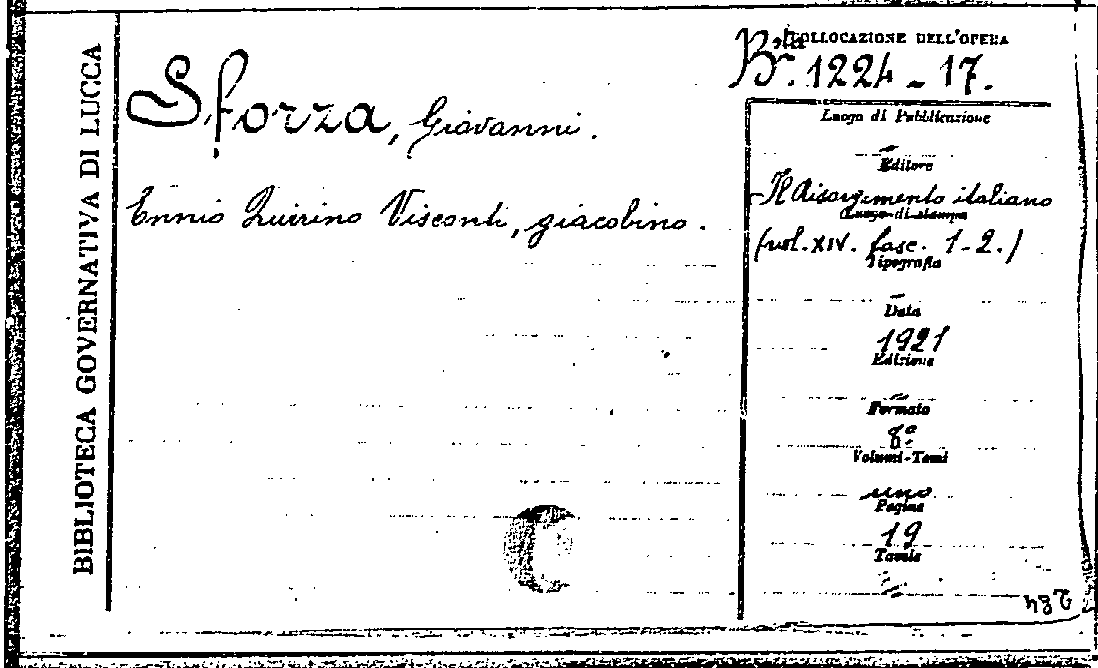 BIBLIOTECA GOVERNATIVA DI LUCCA
Sforza, Giovanni.
Ennio Quirino Visconti, giacobino.
COLLOCAZIONE DELL'OPERA
Bta. 1224 - 17.
Luogo di Pubblicazione
Editore
Il Risorgimento italiano
Luogo di stampa
(vol. XIV. fasc. 1-2.)
Tipografia
Data
1921
Edizione
Formato
8º
Volumi-Tomi
uno
Pagine
19
Tavole